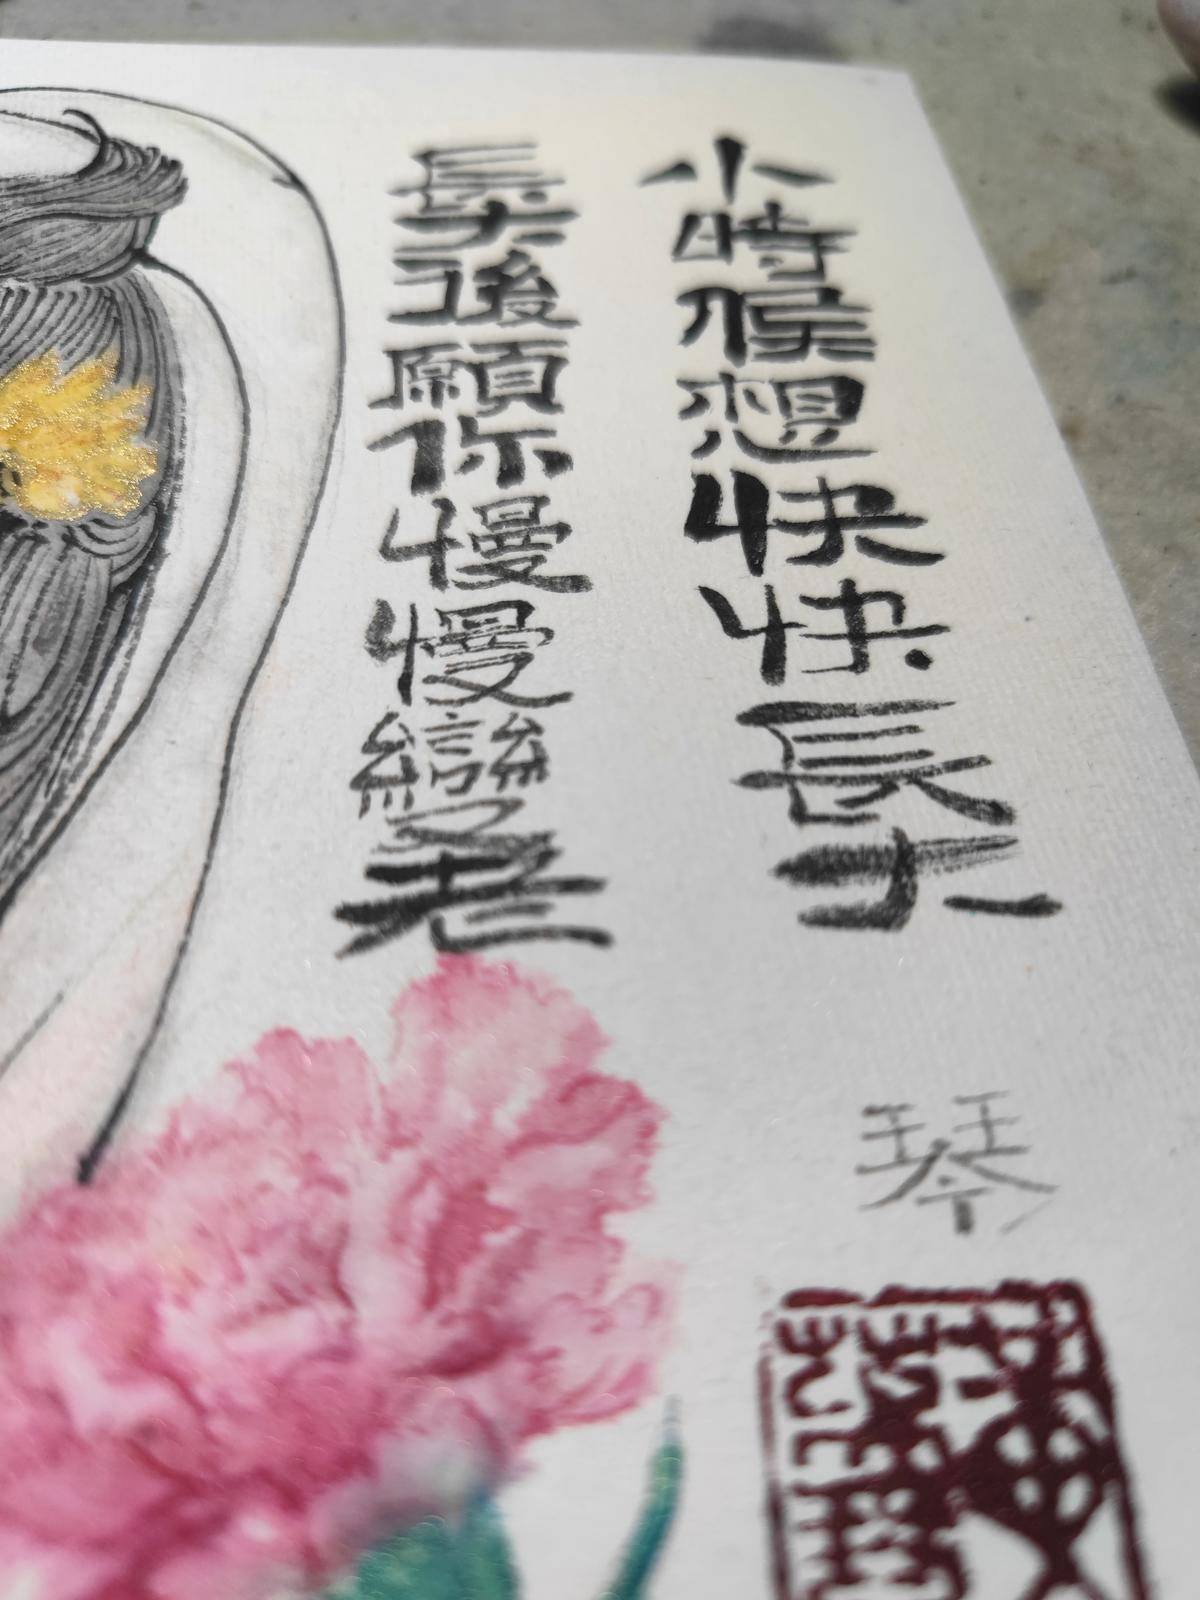 小時候想快快長大
長大後願你慢慢變老
琴